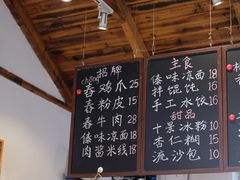 招牌
舂鸡爪 25
舂粉皮 15
舂牛肉 28
傣味凉面 18
肉酱米线 18
主食
傣味凉面 18
拌馄饨 16
手工水饺 16
甜品
十景冰粉 10
杏仁糊 15
流沙包 15